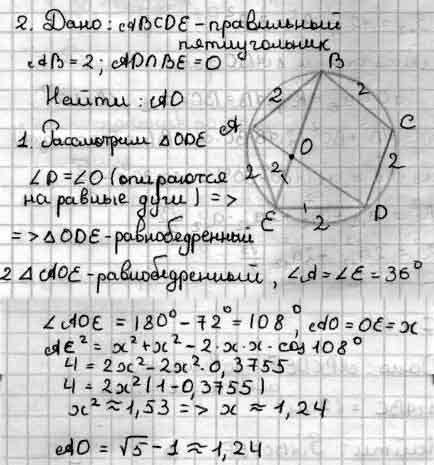 2. Дано: ABCDE - правильный
пятиугольник
AB = 2; AD∩BE = O
Найти: AO
1. Рассмотрим △ODE
∠D = ∠O (опираются
на равные дуги) =>
=> △ODE - равнобедренный
2 △AOE - равнобедренный, ∠A = ∠E = 36°
∠AOE = 180° - 72° = 108°, AO = OE = x
AE² = x² + x² - 2·x·x·cos 108°
4 = 2x² - 2x²·0,3755
4 = 2x²(1 - 0,3755)
x² ≈ 1,53 => x ≈ 1,24
AO = √5 - 1 ≈ 1,24
B
2
2
A
C
O
2
2
2
E
2
D